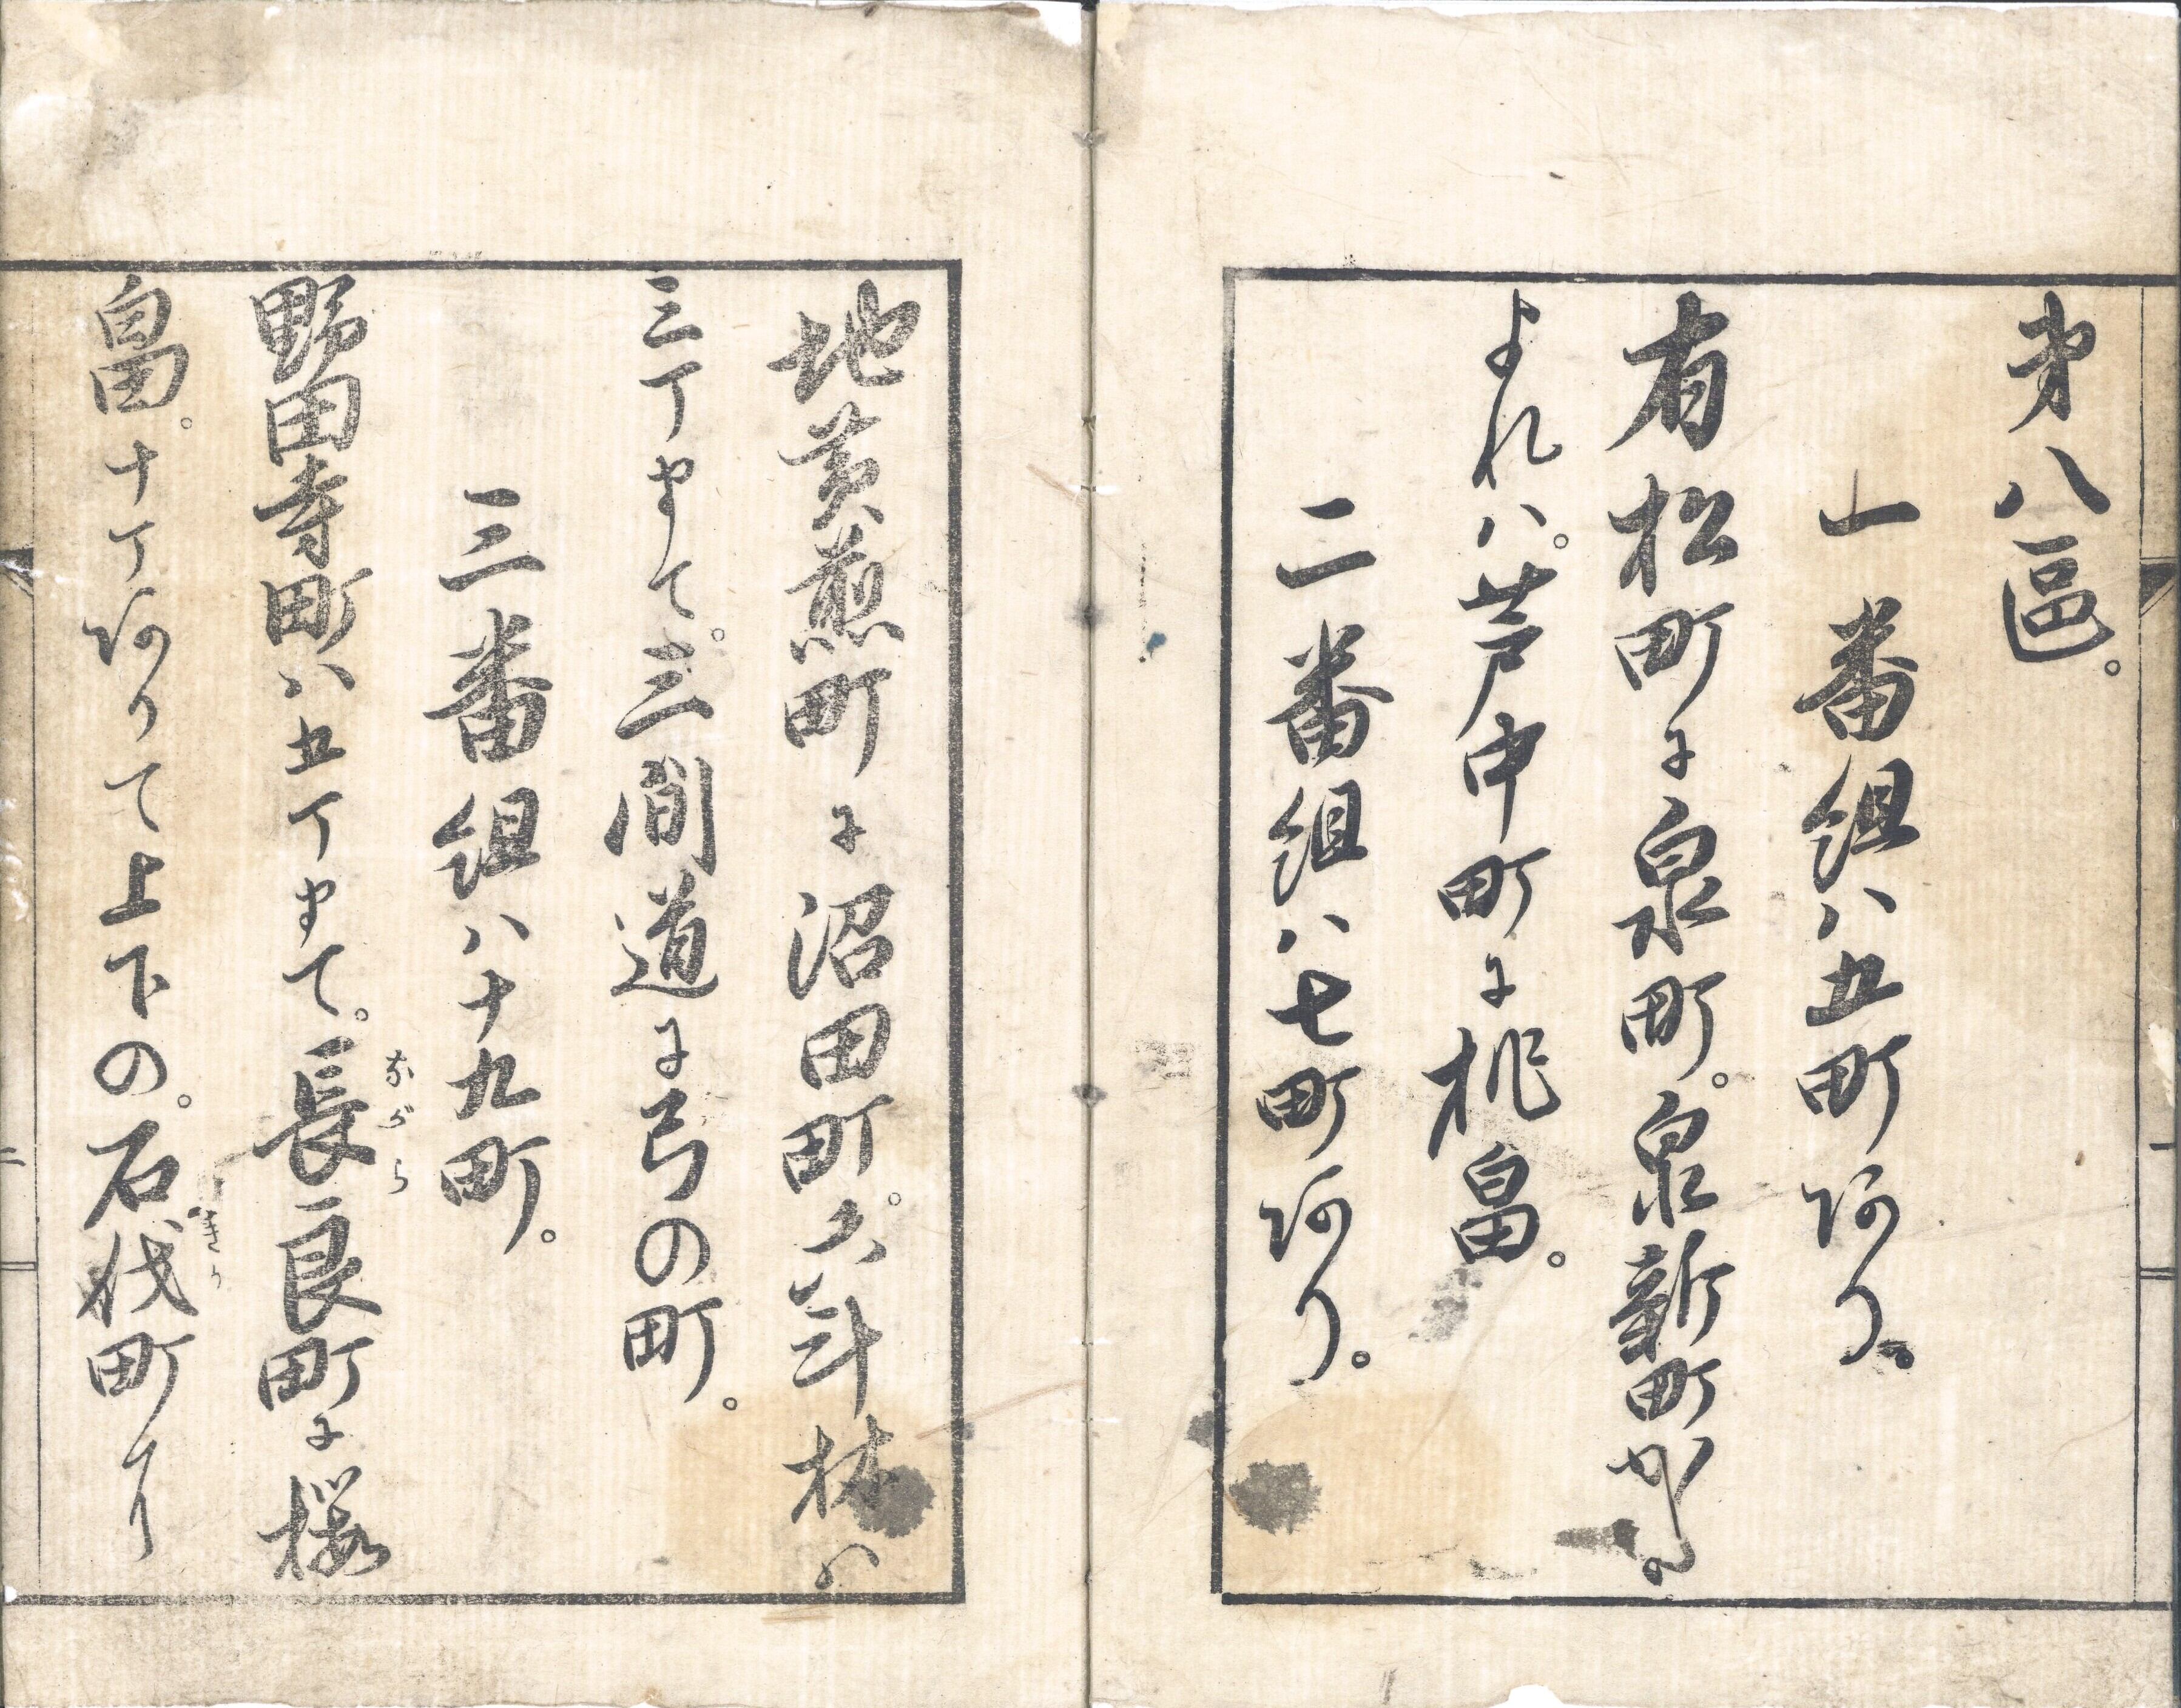 第八區。
一番組ハ五町あり。
有松町に泉町。泉新町から
よれハ。芦中町に桃畠。
二番組ハ七町あり。
地黄煎町に沼田町。六斗林ハ
三丁まて。三間道に弓の町。
三番組ハ十九町。
野田寺町ハ五丁まて。長良町に桜
ながら
畠。十丁ありて上下の。石伐町より
きり